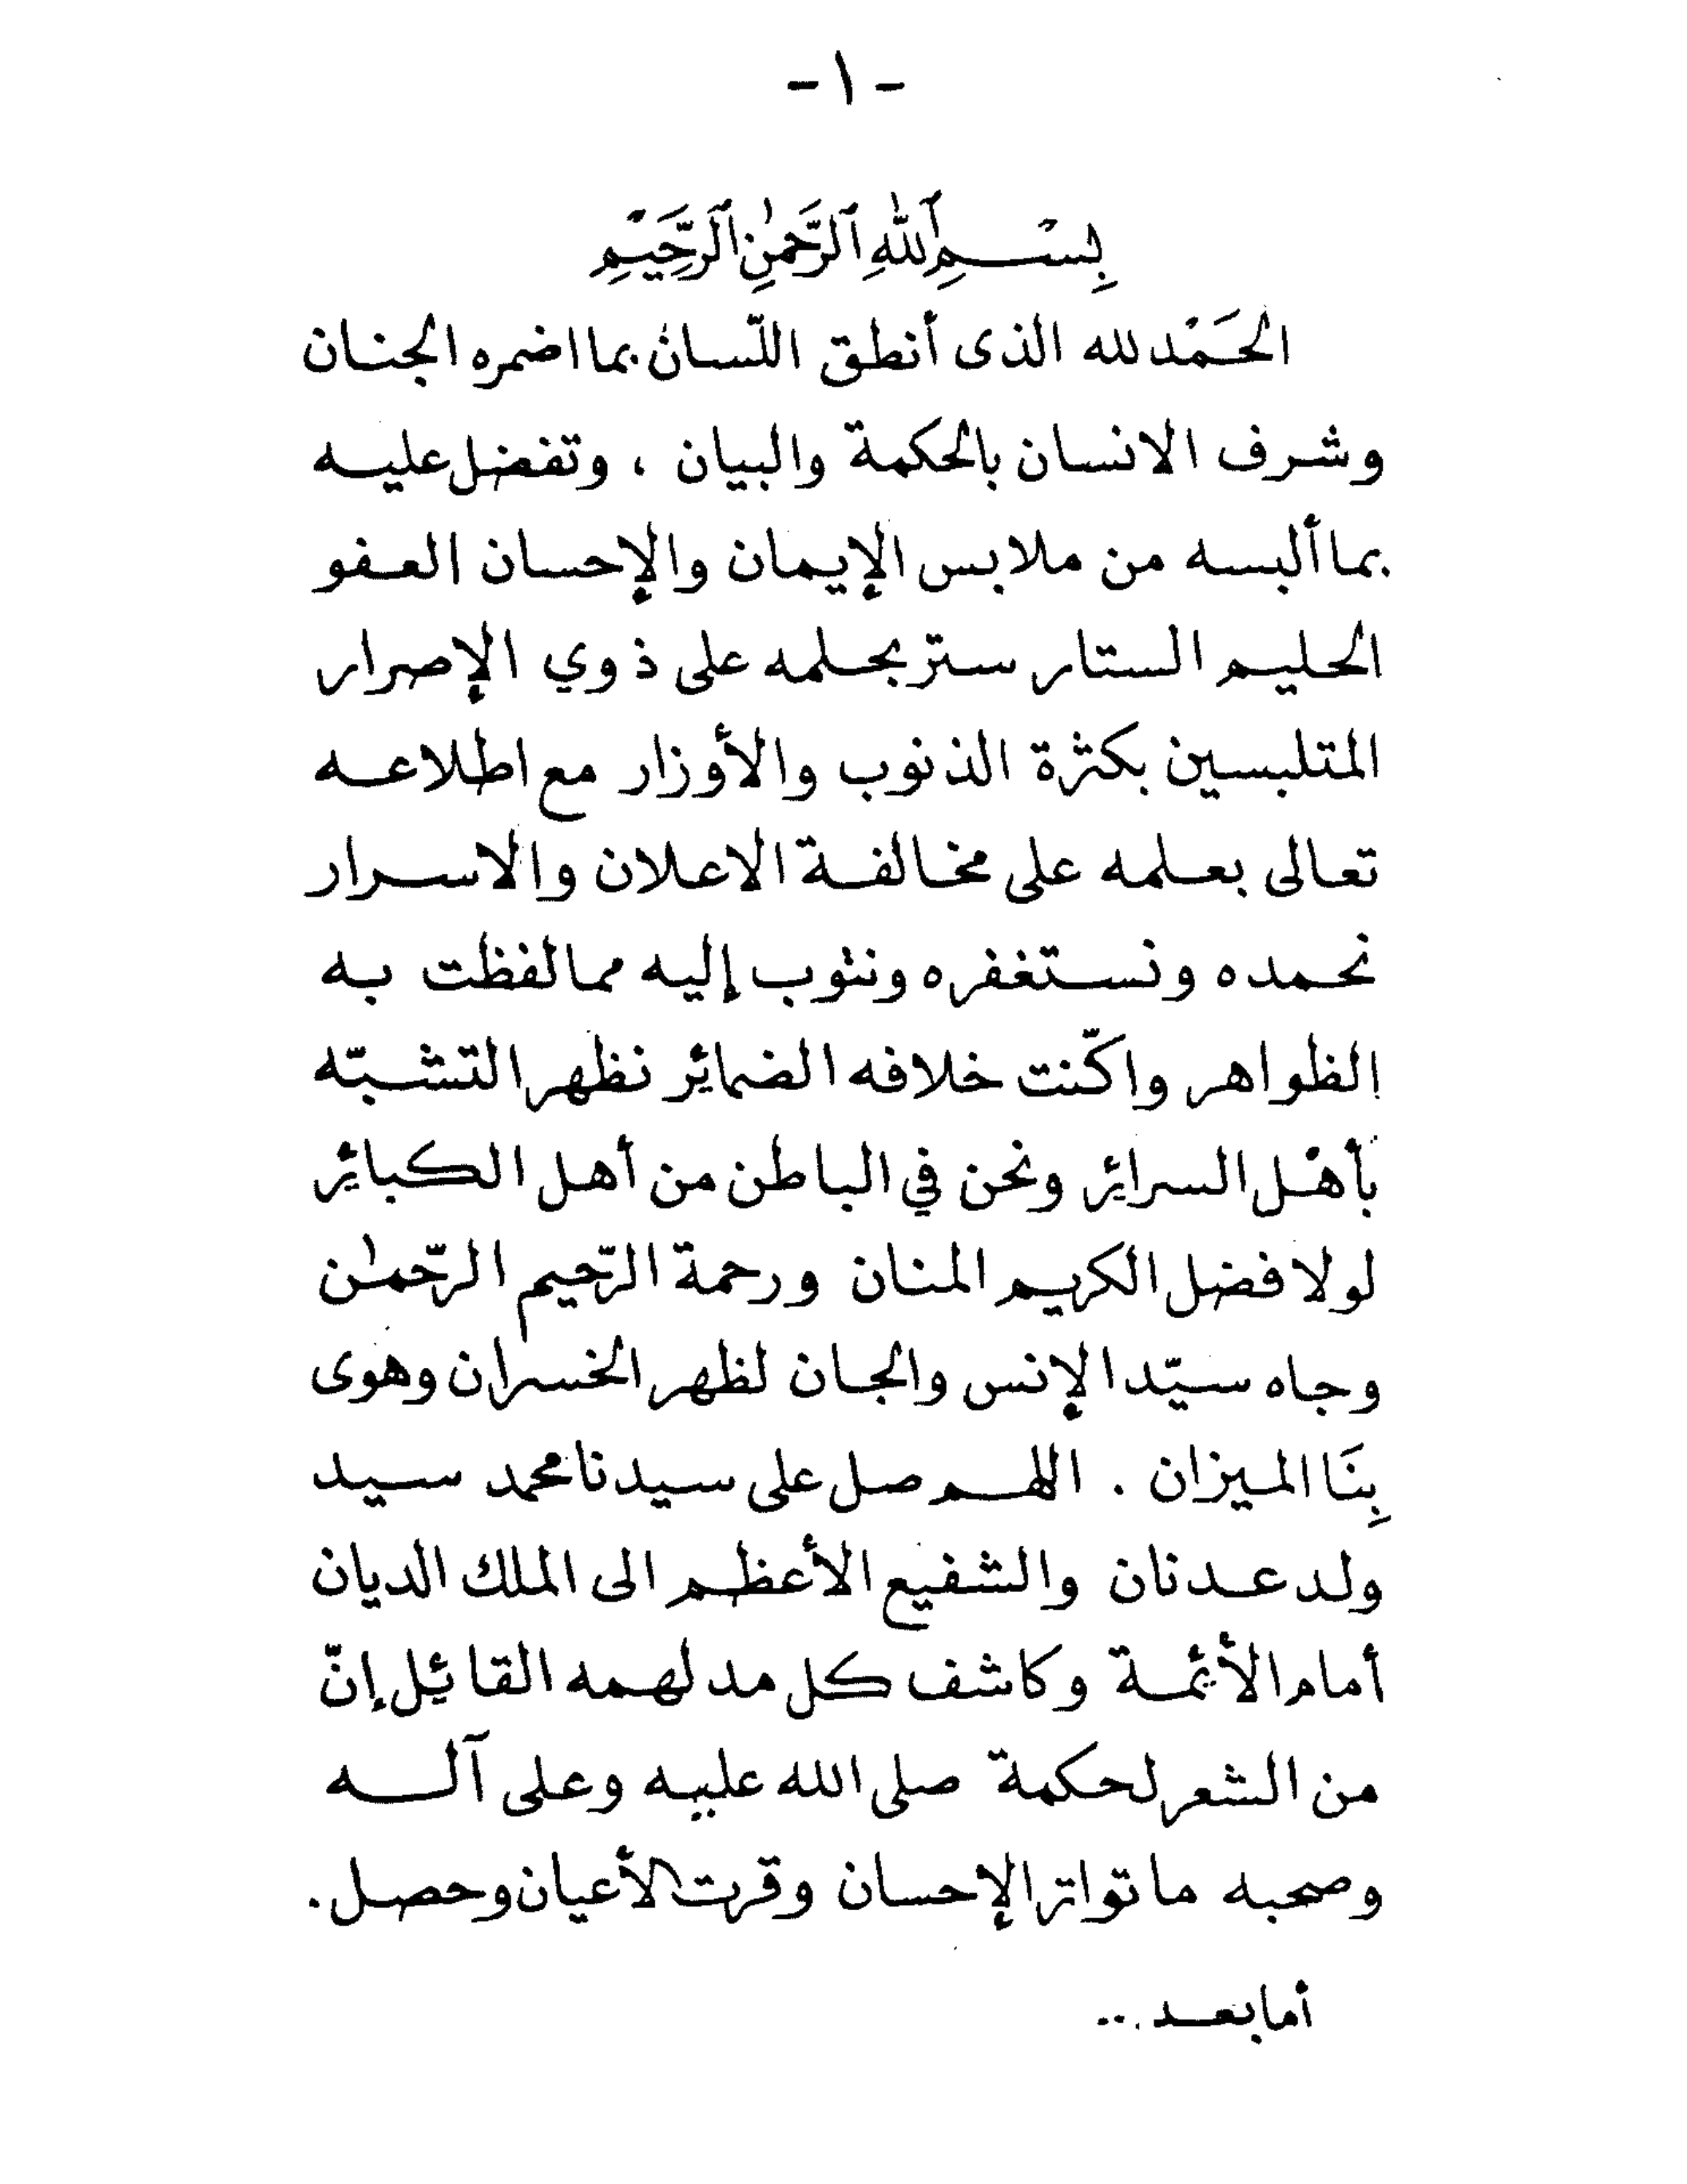 -١-
بِسْمِ ٱللَّهِ ٱلرَّحْمَٰنِ ٱلرَّحِيْمِ
الحَمْد لله الذى أنطق اللّسان بما اضمره الجنان
وشرف الانسان بالحكمة والبيان ، وتفضل عليه
بما ألبسه من ملابس الإيمان والإحسان العفو
الحليم الستار ستر بحلمه على ذوي الإصرار
المتلبسين بكثرة الذنوب والأوزار مع اطلاعه
تعالى بعلمه على مخالفة الاعلان والاسرار
نحمده ونستغفره ونتوب إليه مما لفظت به
الظواهر واكنّت خلافه الضمائر نظهر التشبّه
بأهْل السرائر ونحن في الباطن من أهل الكبائر
لولا فضل الكريم المنان ورحمة الرّحيم الرّحمٰن
وجاه سيّد الإنس والجان لظهر الخسران وهوى
بِنَا الميزان . اللهم صل على سيدنا محمد سيد
ولد عدنان والشفيع الأعظم الى الملك الديان
أمام الأئمة وكاشف كل مدلهمه القائل إنّ
من الشعر لحكمة صلى الله عليه وعلى آله
وصحبه ما تواتر الإحسان وقرت الأعيان وحصل .
أما بعد ...